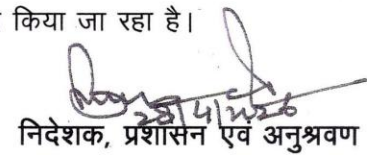 किया जा रहा है।
28/4/2026
निदेशक, प्रशासन एवं अनुश्रवण